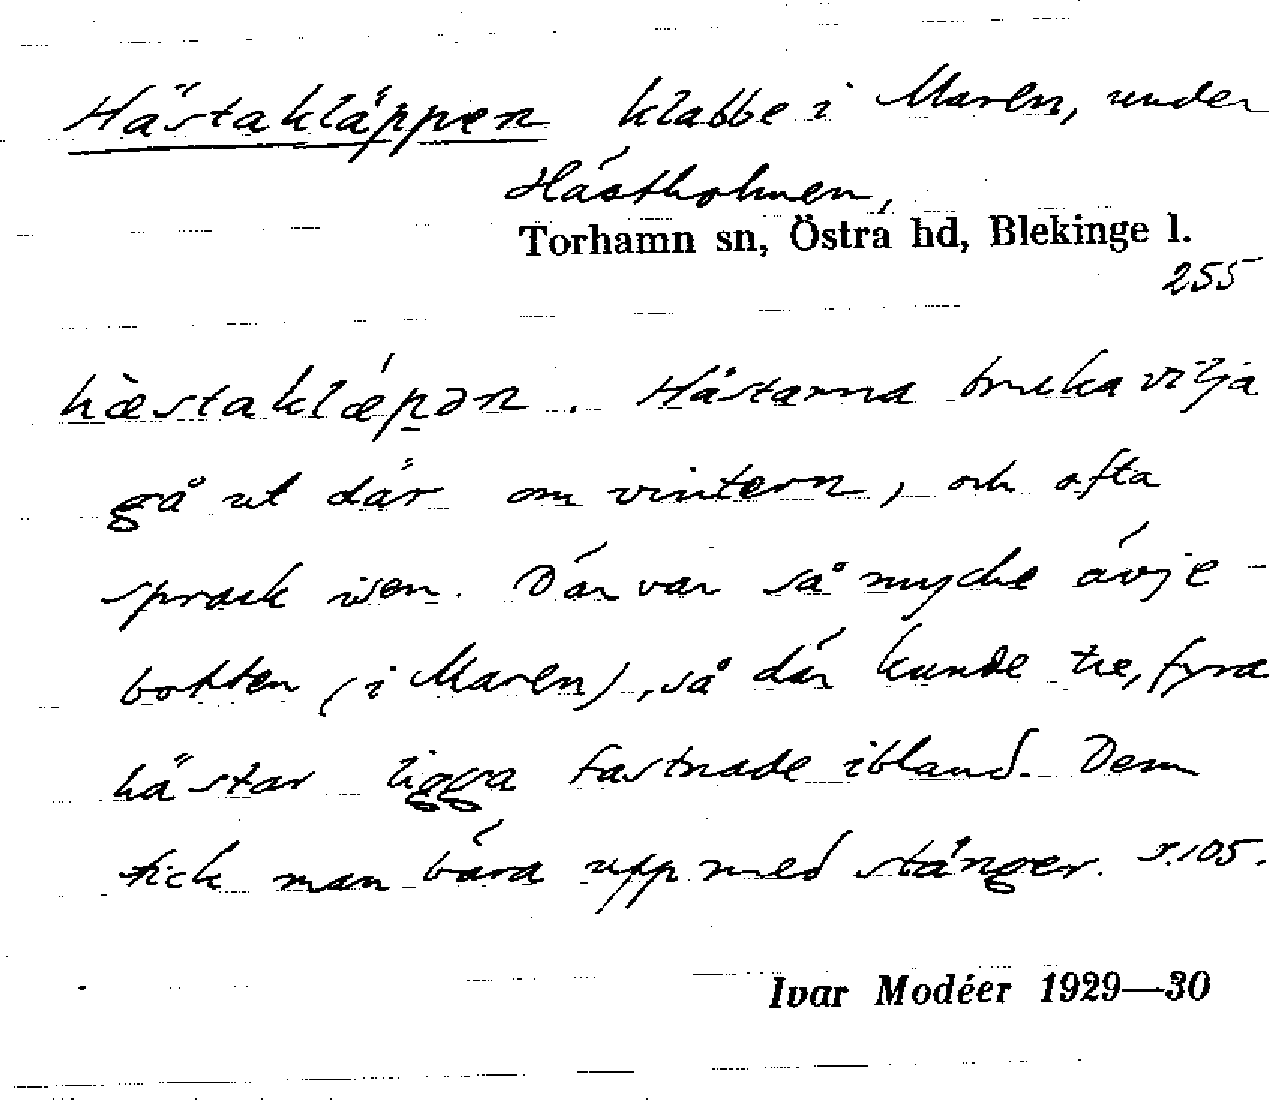 Hästakläppen klabbe i Maren, under
Hästholmen,
Torhamn sn, Östra hd, Blekinge l.
255
hæ̀staklæpən. Hästarna bruka vilja
gå ut där om vintern, och ofta
sprack isen. Där var så mycke ävje-
botten (i Maren), så där kunde tre, fyra
hästar ligga fastnade ibland. Dem
fick man bära upp med stänger. S.105.
Ivar Modéer 1929—30